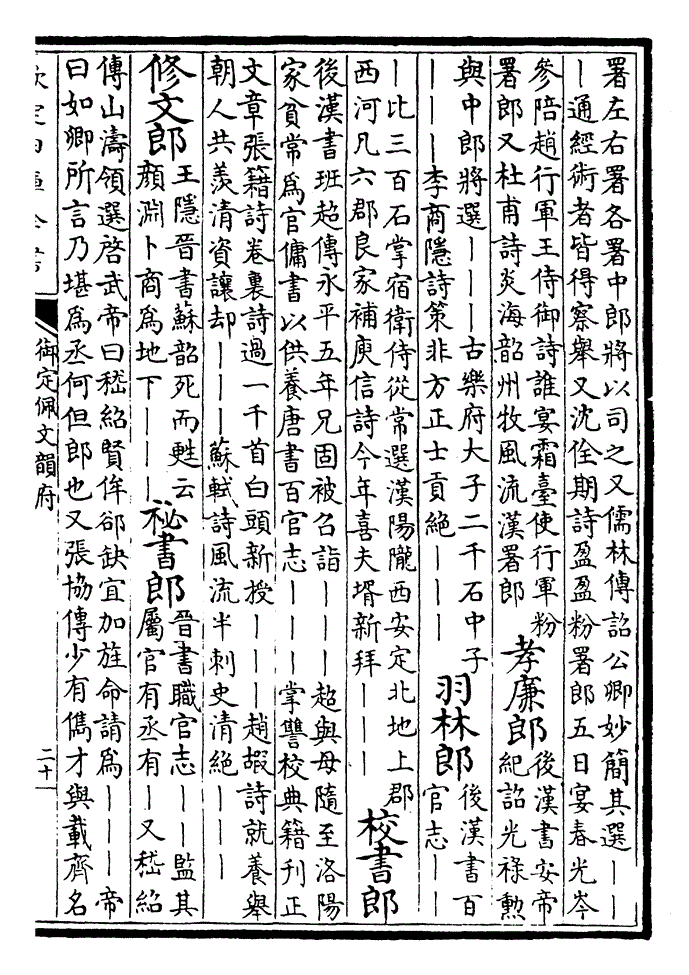 署左右署各署中郎將以司之又儒林傳詔公卿妙簡其選——
—通經術者皆得察舉又沈佺期詩盈盈粉署郎五日宴春光岑
參陪趙行軍王侍御詩誰宴霜臺使行軍粉
署郎又杜甫詩炎海韶州牧風流漢署郎
孝廉郎
後漢書安帝
紀詔光祿勲
與中郎將選———古樂府大子二千石中子
———李商隱詩策非方正士貢絕———
羽林郎
後漢書百
官志——
—比三百石掌宿衛侍從常選漢陽隴西安定北地上郡
西河凡六郡良家補庾信詩今年喜夫壻新拜———
校書郎
後漢書班超傳永平五年兄固被召詣———超與母隨至洛陽
家貧常爲官傭書以供養唐書百官志———掌讐校典籍刊正
文章張籍詩卷裏詩過一千首白頭新授———趙嘏詩就養舉
朝人共羨清資讓却———蘇軾詩風流半刺史清絕———
修文郎
王隱晉書蘇韶死而甦云
顏淵卜商爲地下———
祕書郎
晉書職官志——監其
屬官有丞有—又嵇紹
傳山濤領選啓武帝曰嵇紹賢侔郤缺宜加旌命請爲———帝
曰如卿所言乃堪爲丞何但郎也又張協傳少有儁才與載齊名
欽定四庫全書
御定佩文韻府
二十